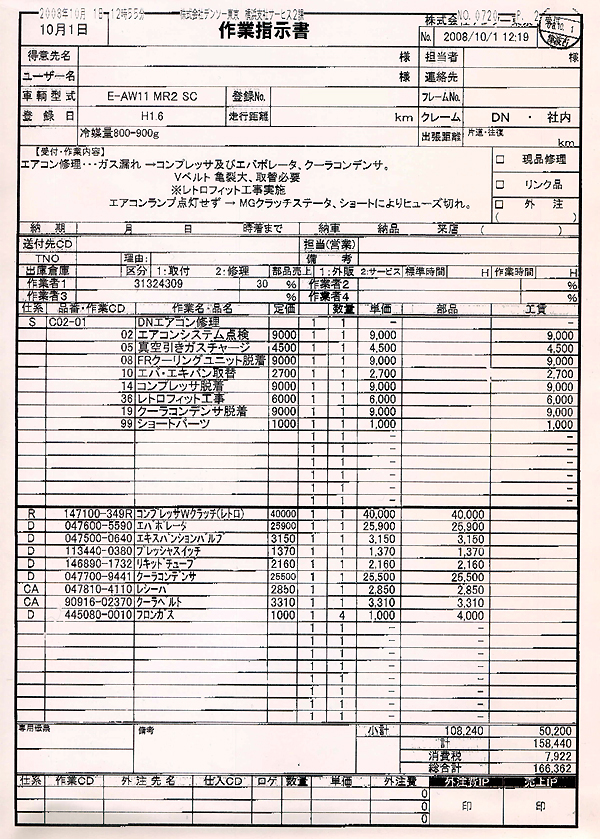 2008年10月 1日 12時55分 株式会社デンソー東京 横浜支社サービス2課 NO. 0720 P. 2
10月1日 作業指示書 株式会社
No. 2008/10/1 12:19
得意先名 様 担当者 様
ユーザー名 様 連絡先
車輌型式 E-AW11 MR2 SC 登録No. フレームNo.
登録日 H1.6 走行距離 km クレーム DN ・ 社内
冷媒量800-900g 出張距離 片道・往復 km
【受付・作業内容】
エアコン修理・・・ガス漏れ →コンプレッサ及びエバポレータ、クーラコンデンサ。
Vベルト 亀裂大、取替必要
※レトロフィット工事実施
エアコンランプ点灯せず → MGクラッチステータ、ショートによりヒューズ切れ。
□ 現品修理
□ リンク品
□ 外注
( )
納期 月 日 時着まで 納車 納品 来店 ( )
送付先CD 担当(営業)
TNO 理由: 備考
出庫倉庫 区分 1:取付 2:修理 部品売上 1:外販 2:サービス 標準時間 H 作業時間 H
作業者1 31324309 30 % 作業者2 %
作業者3 % 作業者4 %
仕系 品番・作業CD 作業名・品名 定価 数量 単価 部品 工賃
S C02-01 DNエアコン修理 1 1 − −
02 エアコンシステム点検 9000 1 1 9,000 9,000
05 真空引きガスチャージ 4500 1 1 4,500 4,500
08 FRクーリングユニット脱着 9000 1 1 9,000 9,000
10 エバ・エキパン取替 2700 1 1 2,700 2,700
14 コンプレッサ脱着 9000 1 1 9,000 9,000
36 レトロフィット工事 6000 1 1 6,000 6,000
19 クーラコンデンサ脱着 9000 1 1 9,000 9,000
99 ショートパーツ 1000 1 1 1,000 1,000
1 1 − −
1 1 − −
1 1 − −
1 1 − −
1 1 − −
1 1 − −
R 147100-349R コンプレッサWクラッチ(レトロ) 40000 1 1 40,000 40,000
D 047600-5590 エバポレータ 25900 1 1 25,900 25,900
D 047500-0640 エキスパンションバルブ 3150 1 1 3,150 3,150
D 113440-0380 プレッシャスイッチ 1370 1 1 1,370 1,370
D 146890-1732 リキッドチューブ 2160 1 1 2,160 2,160
D 047700-9441 クーラコンデンサ 25500 1 1 25,500 25,500
CA 047810-4110 レシーバ 2850 1 1 2,850 2,850
CA 90916-02370 クーラベルト 3310 1 1 3,310 3,310
D 445080-0010 フロンガス 1000 1 4 1,000 4,000
1 1 − −
1 1 − −
1 1 − −
1 1 − −
1 1 − −
1 1 − −
1 1 − −
1 1 − −
専用伝票 備考 小計 108,240 50,200
計 158,440
消費税 7,922
総合計 166,362
仕系 作業CD 外注先名 仕入CD ロケ 数量 単価 外注費 外注費IP 売上IP
0 印 印
0
0